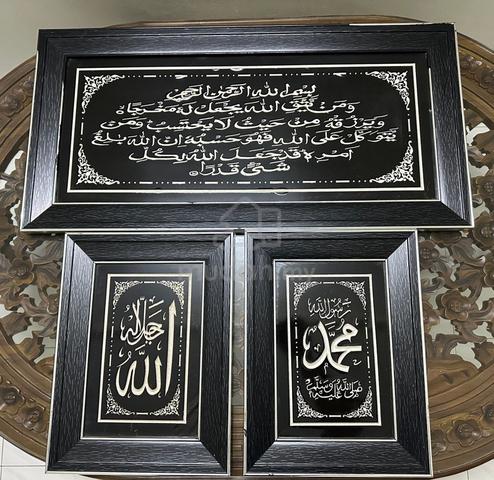 بسم الله الرحمن الرحيم
ومن يتق الله يجعل له مخرجا
ويرزقه من حيث لا يحتسب ومن
يتوكل على الله فهو حسبه ان الله بالغ
امره قد جعل الله لكل
شئ قدرا
الله
جل جلاله
رسول الله
محمد
صلى الله عليه وسلم